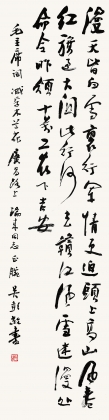 漫天皆白雪里行军情更迫头上高山风卷
红旗过大关此行何去赣江风雪迷漫处
命令昨颁十万工农下吉安
毛主席词减字木兰花广昌路上 瑞来同志正腕 吴
书